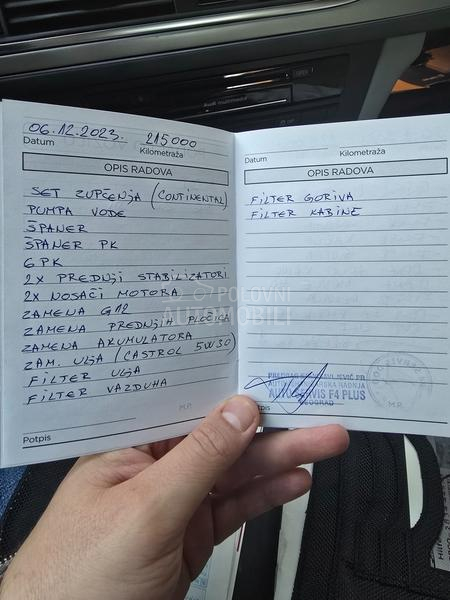 Audi multimedia
06.12.2023. 215000
Datum Kilometraža
OPIS RADOVA
SET ZUPČENJA (CONTINENTAL)
PUMPA VODE
ŠPANER
ŠPANER PK
6PK
2X PREDNJI STABILIZATORI
2X NOSAČI MOTORA
ZAMENA G12
ZAMENA PREDNJIH PLOČICA
ZAMENA AKUMULATORA
ZAM. ULJA (CASTROL 5W30)
FILTER ULJA
FILTER VAZDUHA
M.P.
Potpis
Datum Kilometraža
OPIS RADOVA
FILTER GORIVA
FILTER KABINE
POLOVNI
AUTOMOBILI
PREDRAG
AUTO SERVIS F4 PLUS
BEOGRAD
M.P.